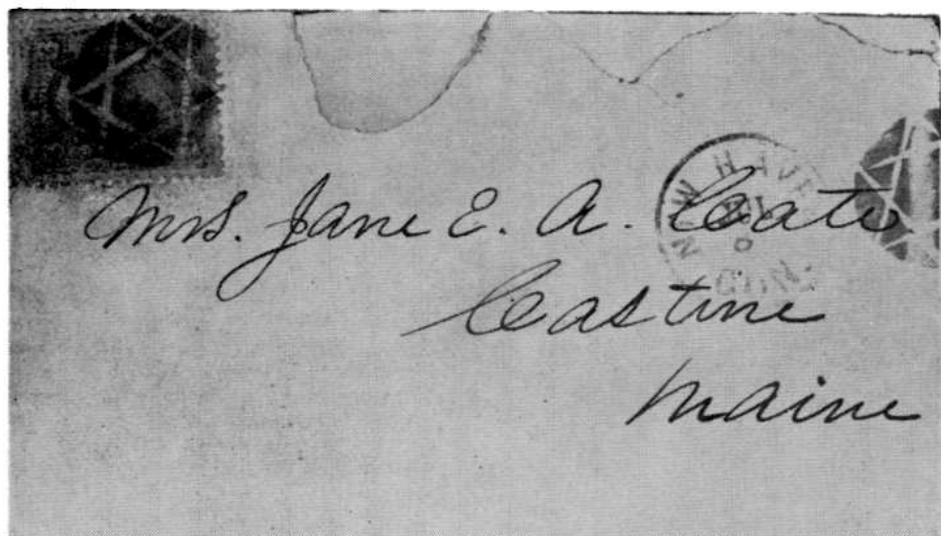 NEW HAVE
CON.
Mrs. Jane E. A.
Castine
Maine